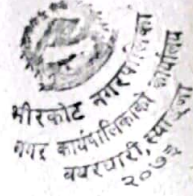 भीरकोट नगरपालिका
नगर कार्यपालिकाको कार्यालय
बयरघारी, स्याङ्जा
२०७३